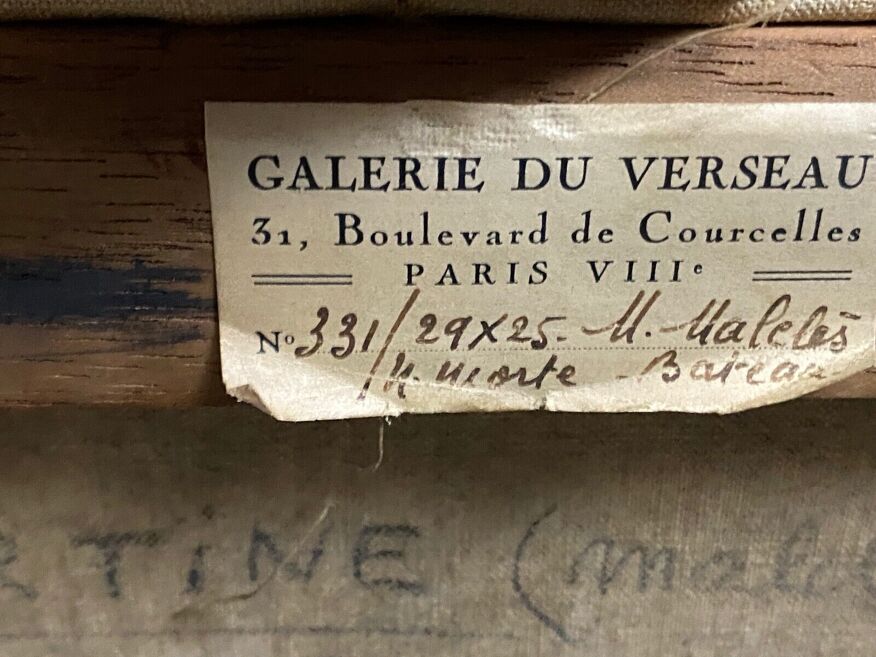 GALERIE DU VERSEAU
31, Boulevard de Courcelles
PARIS VIIIᵉ
Nº 331/29x25. M. Malclès
N. morte - Bateau
RTINE (malc